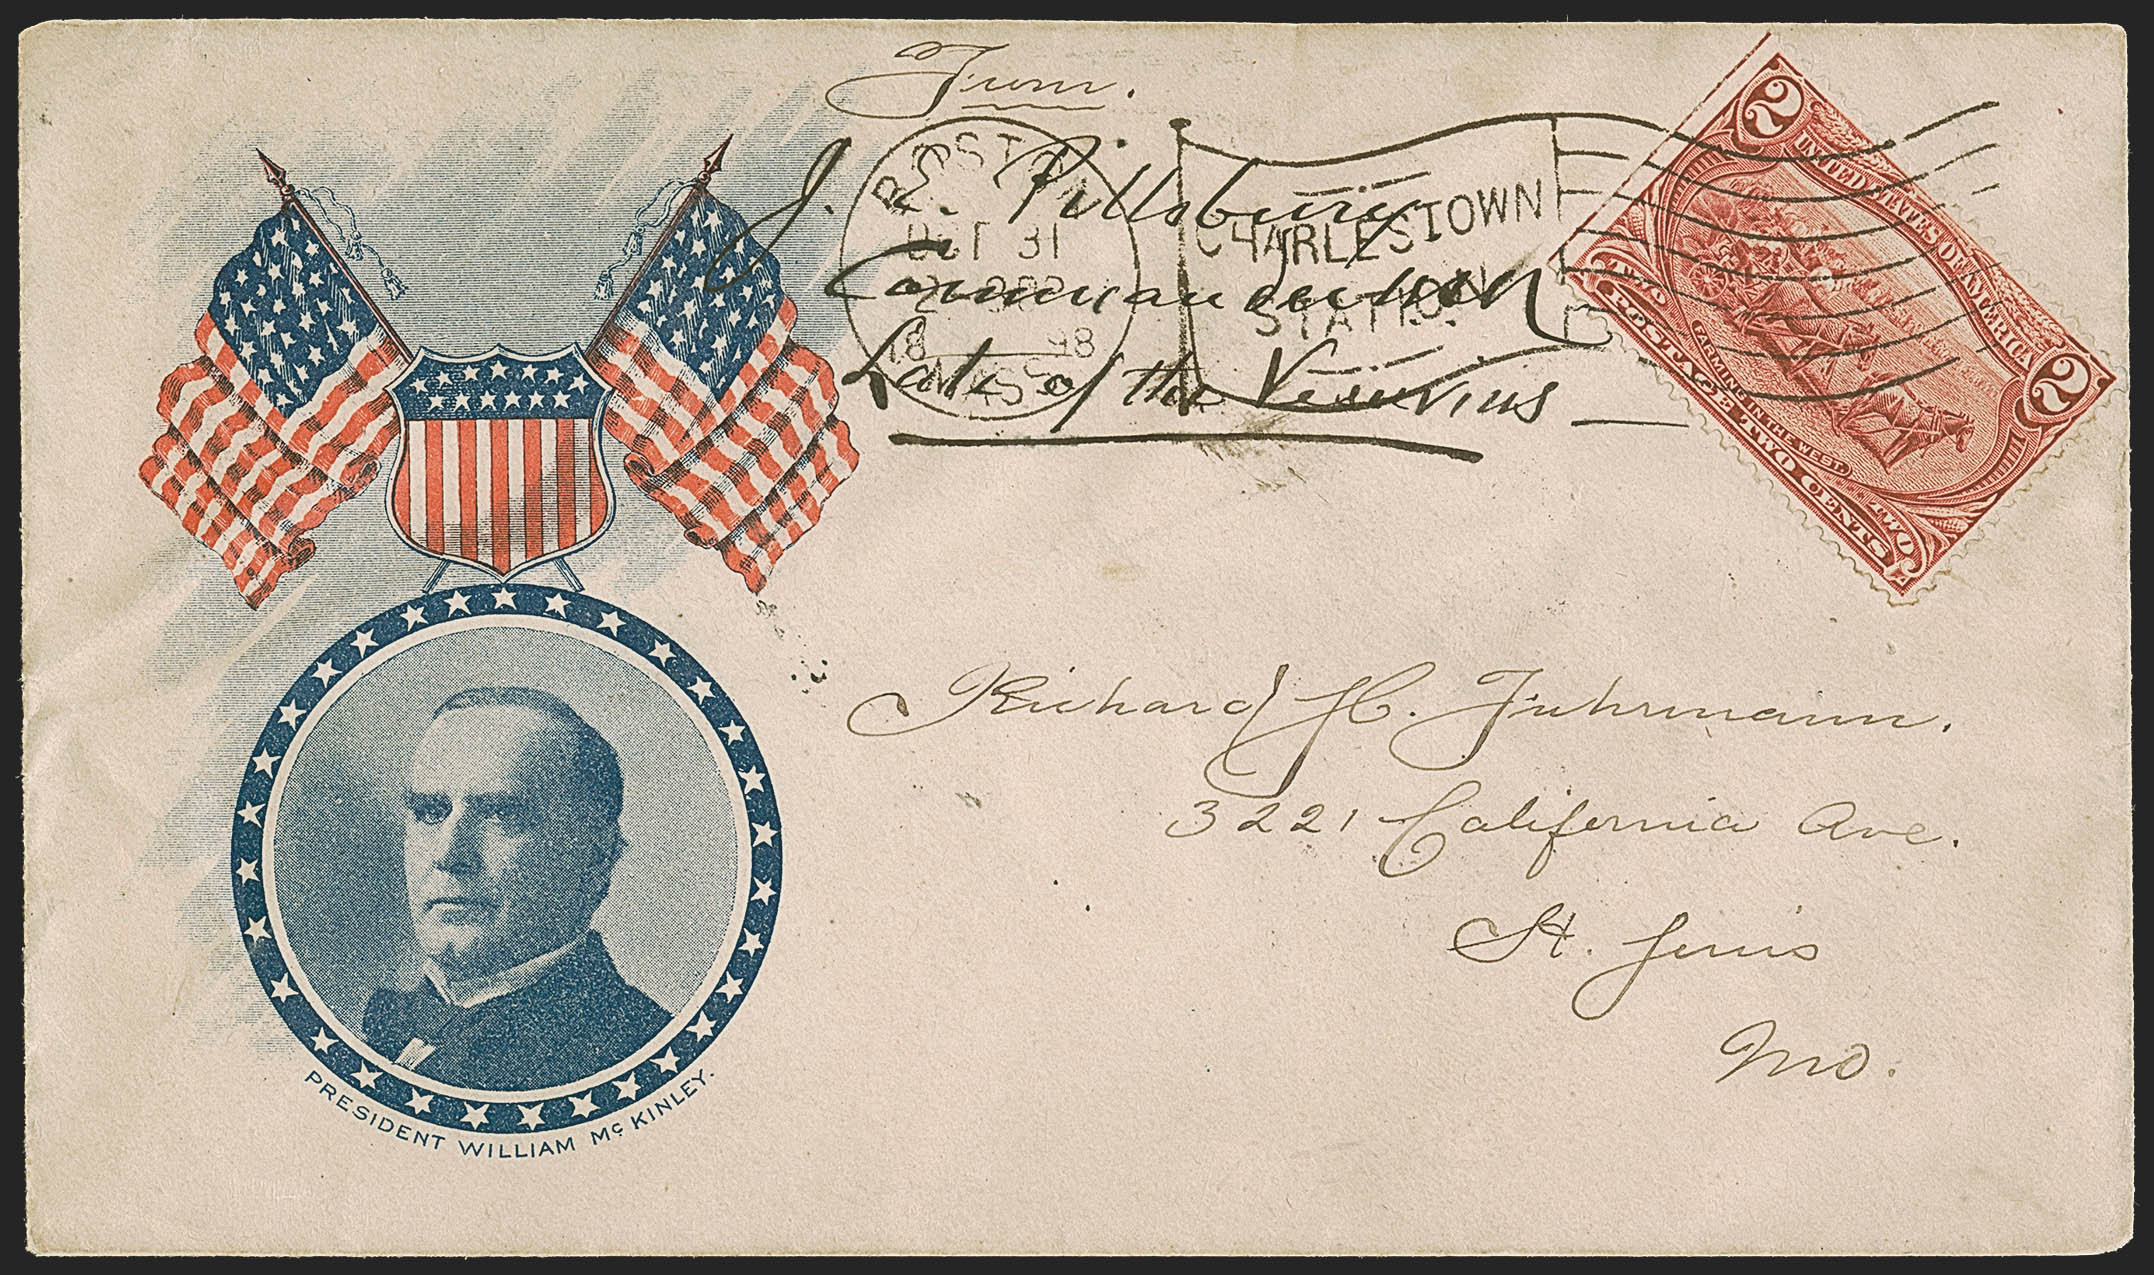 From.
J. E. Pillsbury
Commander USN
Late of the Vesuvius
BOSTON
OCT 31
2 30P
18 98
MASS.
CHARLESTOWN
STATION
2
UNITED STATES OF AMERICA
2
TWO
FARMING IN THE WEST.
TWO
POSTAGE TWO CENTS
Richard H. Fuhrmann.
3221 California Ave.
St. Louis
Mo.
PRESIDENT WILLIAM McKINLEY.